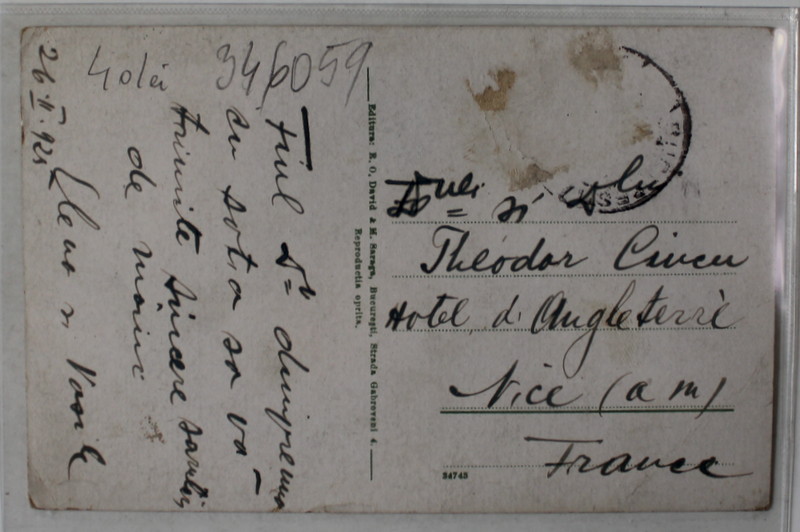 40 lei
346059
26.II.921
Fiul Dv dimpreuna
cu sotia sa vă
trimite sincere sarutări
de mâini
Elena si Vasile
Editura: R. O. David & M. Saraga, Bucureşti, Strada Gabroveni 4.
Reproducția oprita.
Dnei si Dlui
Theodor Ciucu
Hotel d'Angleterrè
Nice (a m)
France
34743